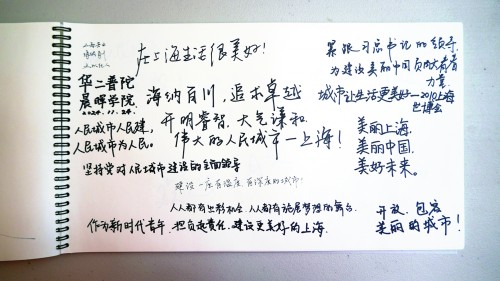 在上海生活很美好！
华二普陀
晨晖学院
2024.11.24.
海纳百川，追求卓越
开明睿智，大气谦和
伟大的人民城市—上海！
人民城市人民建，
人民城市为人民。
坚持党对人民城市建设的全面领导
建设一座有温度、有深度的城市！
人人都有出彩机会、人人都有施展梦想的舞台
作为新时代青年，担负起责任，建设更美好的上海.
紧跟习总书记的领导，
为建设美丽中国贡献青春
力量.
城市让生活更美好—2010上海
世博会
美丽上海.
美丽中国.
美好未来。
开放、包容
美丽的城市！